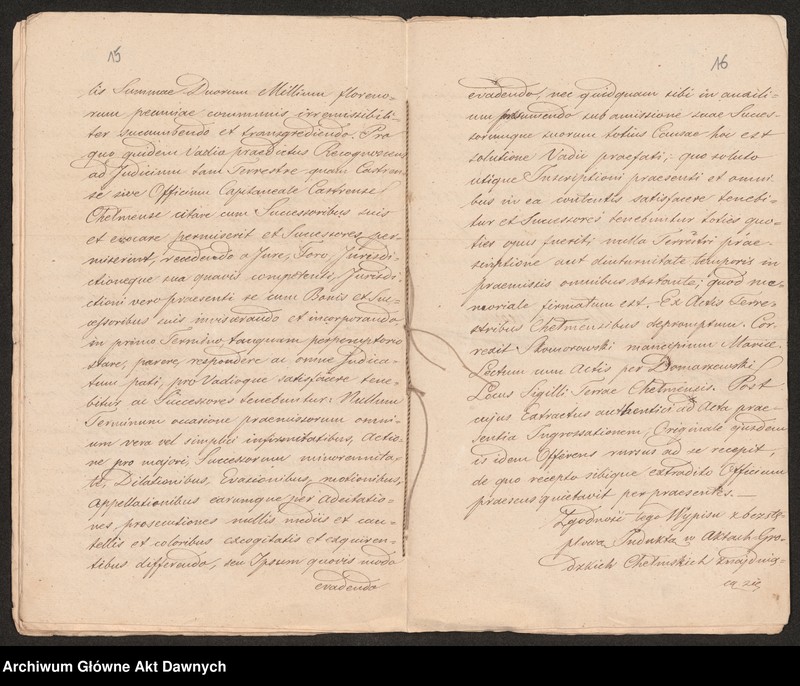 15
lis Summae Duorum Millium floreno-
rum pecuniae communis irremissibili-
ter succumbendo et transgrediendo. Pro
quo quidem Vadio praedictus Recognoscens
ad Judicium tam Terrestre quam Castren-
se sive Officium Capitaneale Castrense
Chelmense citare cum Successoribus suis
et evocare permiserit et Successores per-
miserint, recedendo a Jure, Foro, Jurisdi-
ctioneque sua quavis competenti, Jurisdi-
ctioni vero praesenti se cum Bonis et Suc-
cessoribus suis inviscerando et incorporando
in primo Termino, tanquam peremptorio
stare, parere, respondere ac omne Judica-
tum pati, pro Vadioque satisfacere tene-
bitur ac Successores tenebuntur. Nullum
Terminum occasione praemissorum omni-
um vera vel simplici infirmitatibus, Actio-
ne pro majori, Successorum minorennita-
te, Dilationibus, Evasionibus, motionibus,
appellationibus earumque per adcitatio-
nes, prosecutiones nullis mediis et cau-
tellis et coloribus excogitatis et exquiren-
tibus differendo, seu Ipsum quovis modo
evadendo
16
evadendo, nec quidquam sibi in auxili-
um sumendo sub amissione suae Succes-
sorumque suorum totius Causae hoc est
solutione Vadii praefati; quo soluto
utique Inscriptioni praesenti et omni
bus in ea contentis satisfacere tenebi-
tur et Successores tenebuntur toties quo-
ties opus fuerit; nulla Terrestri prae-
scriptione aut diuturnitate temporis in
praemissis omnibus obstante; quod me-
moriale firmatum est. Ex Actis Terre-
stribus Chelmensibus depromptum. Cor-
rexit Skomorowski mancipium Mariae.
Lectum cum Actis per Domaszewski
Locus Sigilli Terrae Chelmensis. Post
cujus Extractus authentici ad Acta prae-
sentia Ingrossationem, Originale ejusdem
is idem Offerens rursus ad se recepit,
de quo recepto sibique extradito Officium
praesens quietavit per praesentes. —
Zgodność tego Wypisu z bezstę-
plową Induktą w Aktach Gro-
dzkich Chełmskich znajdują-
cą się
Archiwum Główne Akt Dawnych